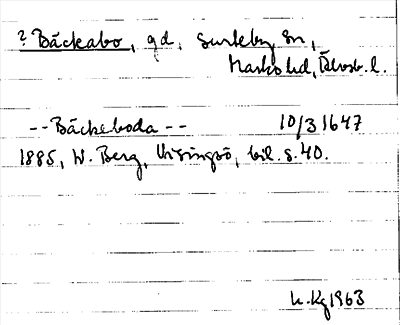 ? Bäckabo, gd, Surteby sn,
Marks hd, Älvsb. l.
-- Bäckeboda -- 10/3 1647
1885, W. Berg, Visingsö, bil. s. 40.
Kg 1963